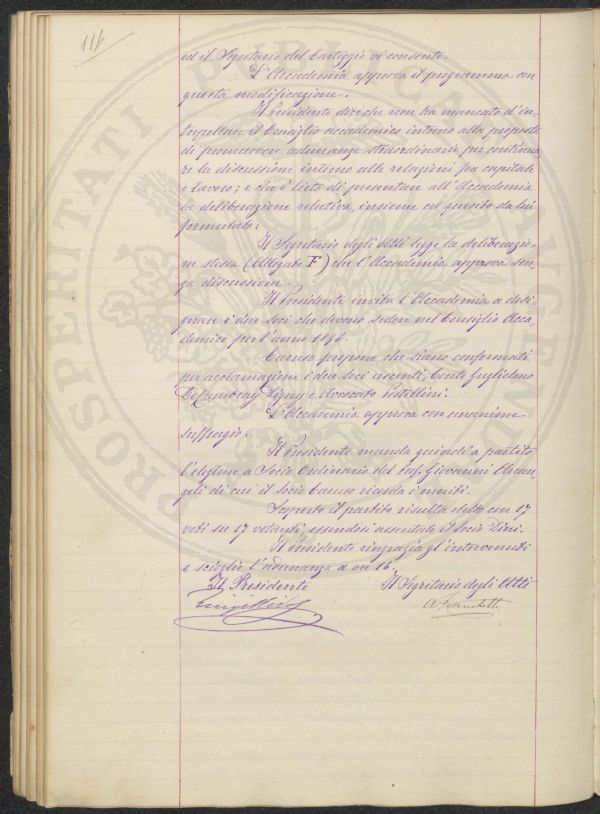 116
ed il Segretario del Carteggio vi consente.
L'Accademia approva il programma con
questa modificazione.
Il Presidente dice che non ha mancato d'in-
terpellare il Consiglio accademico intorno alla proposta
di promuovere adunanze straordinarie per continua
re la discussione intorno alle relazioni fra capitale
e lavoro; e che è lieto di presentare all'Accademia
la deliberazione relativa, insieme col quesito da lui
formulato:
Il Segretario degli Atti legge la deliberazio-
ne stessa (Allegato F) che l'Accademia approva sen-
za discussione.
Il Presidente invita l'Accademia a desi-
gnare i due soci che devono sedere nel Consiglio Acca-
demico per l'anno 1896.
Caruso propone che siano confermati
per acclamazione i due soci uscenti, Conte Guglielmo
De Cambray Digny e Avvocato Pestellini.
L'Accademia approva con unanime
suffragio.
Il Presidente manda quindi a partito
l'elezione a Socio Ordinario del Prof. Giovanni Arcan-
geli di cui il Socio Caruso ricorda i meriti.
Scoperto il partito risulta eletto con 17
voti su 17 votanti, essendosi assentato il Socio Dini.
Il Presidente ringrazia gl'intervenuti
e scioglie l'adunanza a ore 16.
Il Presidente Il Segretario degli Atti
A Franchetti
PROSPERITATI PUBLICAE AUGENDAE